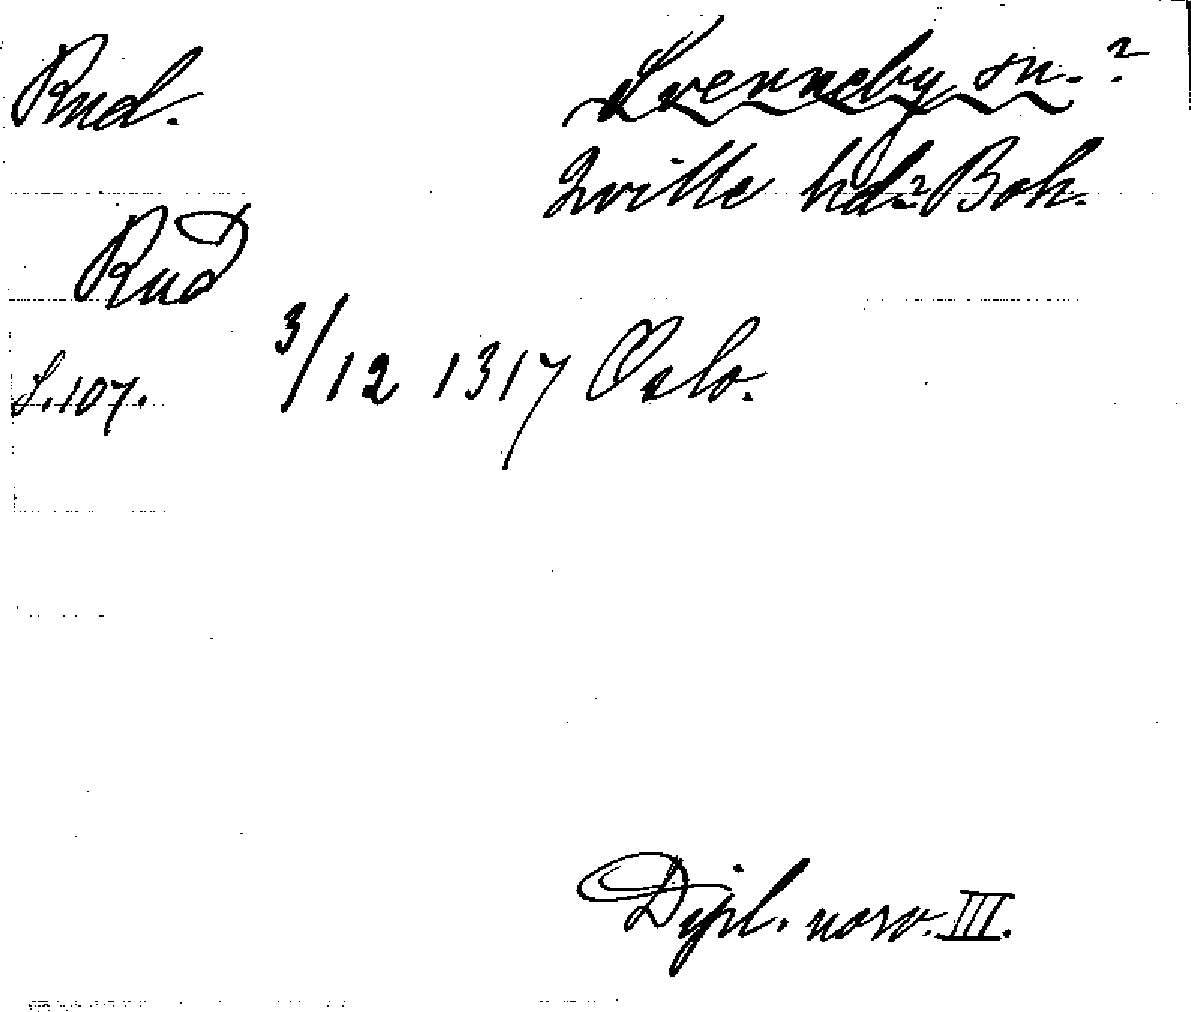 Rud. Svenneby sn.?
Kville hd? Boh.
Rud
S. 107. 3/12 1317 Oslo.
Dipl. norv. III.